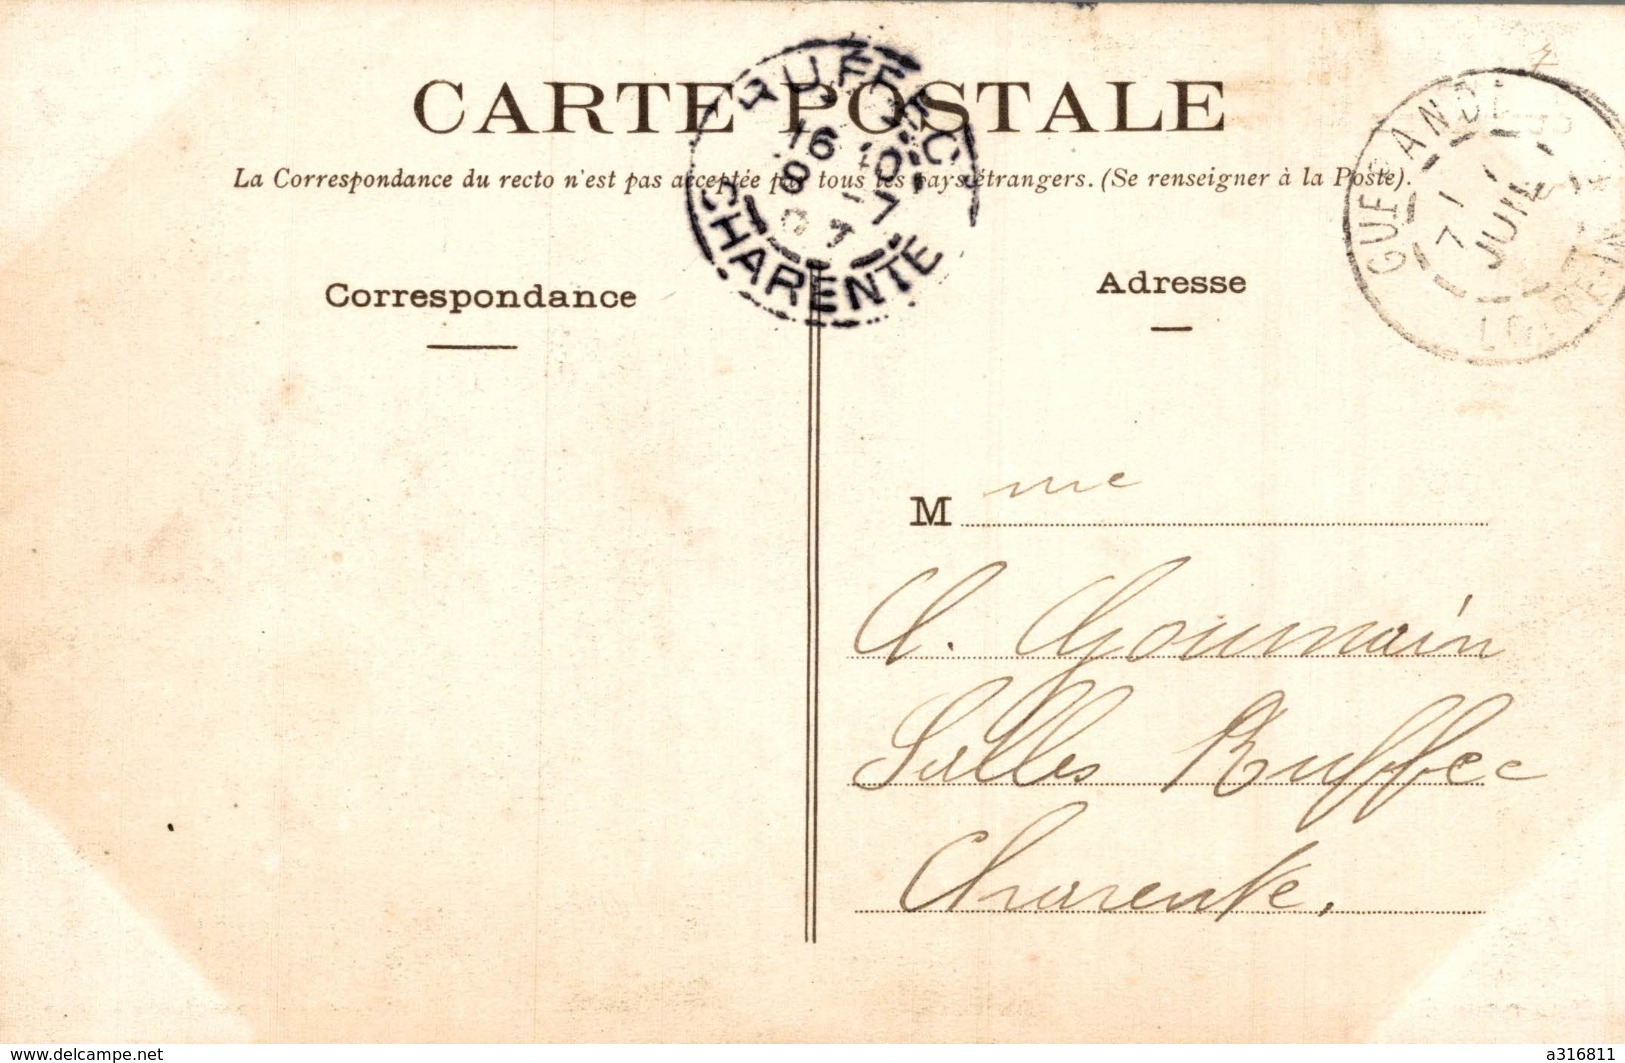 CARTE POSTALE
La Correspondance du recto n'est pas acceptée par tous les pays étrangers. (Se renseigner à la Poste).
RUFFEC
16
8 - 7
07
CHARENTE
GUERANDE
7 1
JUIL
LOIRE-IN
Correspondance
Adresse
M me
A. Goumain
Salles Ruffec
Charente.
www.delcampe.net
a316811